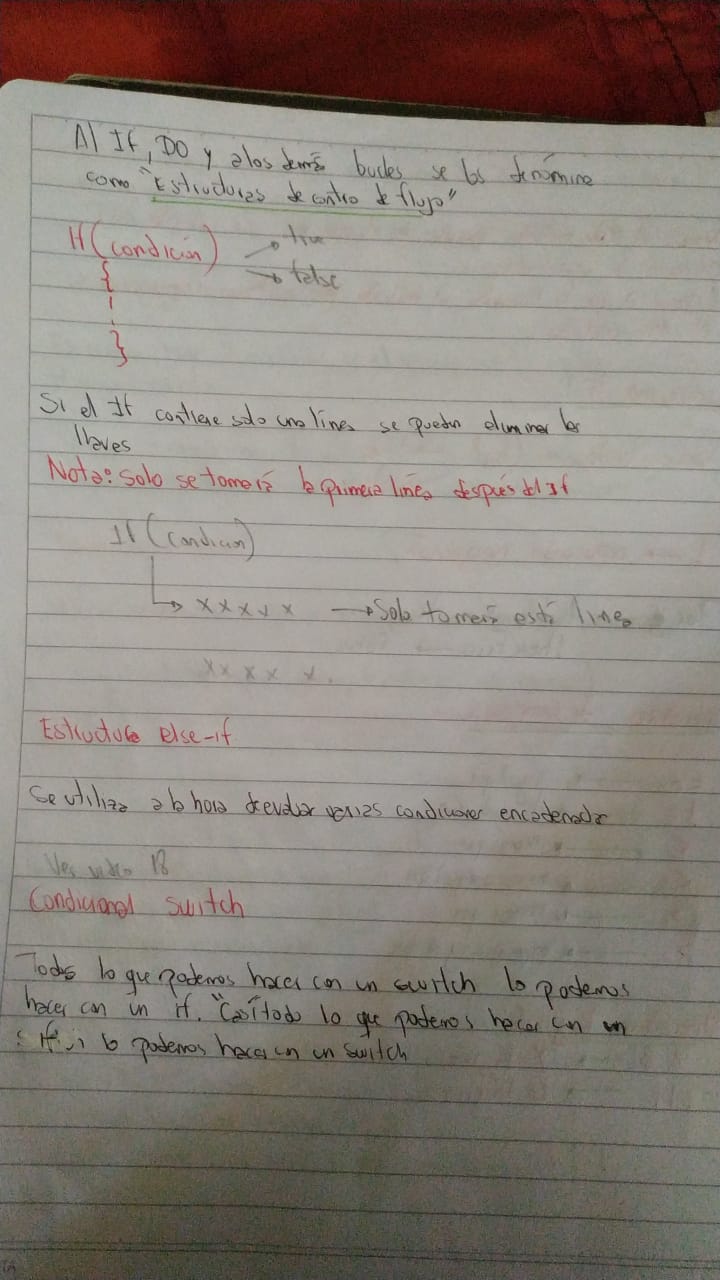 Al If, DO y a los demás bucles se los denomina
como "Estructuras de contro de flujo"
If (condición) → true
→ false
{
}
Si el If contiene solo una línea se pueden eliminar las
llaves
Nota: Solo se tomará la primera línea después del If
If (Condicion)
→ x x x x x → Solo tomará está línea
x x x x x.
Estructura else-if
Se utiliza a la hora de evaluar varias condiciones encadenadas
Ver video 18
Condicional switch
Todo lo que podemos hacer con un switch lo podemos
hacer con un if. "Casi todo lo que podemos hacer con un
if" lo podemos hacer con un switch